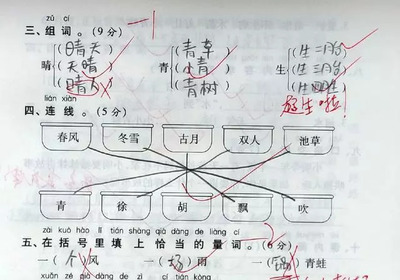 zǔ cí
三、组词。(9分) -1
(晴天 (青草 (生二月台
晴 (天晴 青 (小青 生 (生三月台
(晴人 (青树 (生四月生
放生啦!
lián xiàn
四、连线。(5分)
春风 冬雪 古月 双人 池草
青 徐 胡 飘 吹
zài kuò hào lǐ tián shàng qià dàng de liàng cí
五、在括号里填上恰当的量词。(6分)
一(个)风 一(场)雨 一( )青蛙
xuǎn zé qià dàng de zì tián kòng